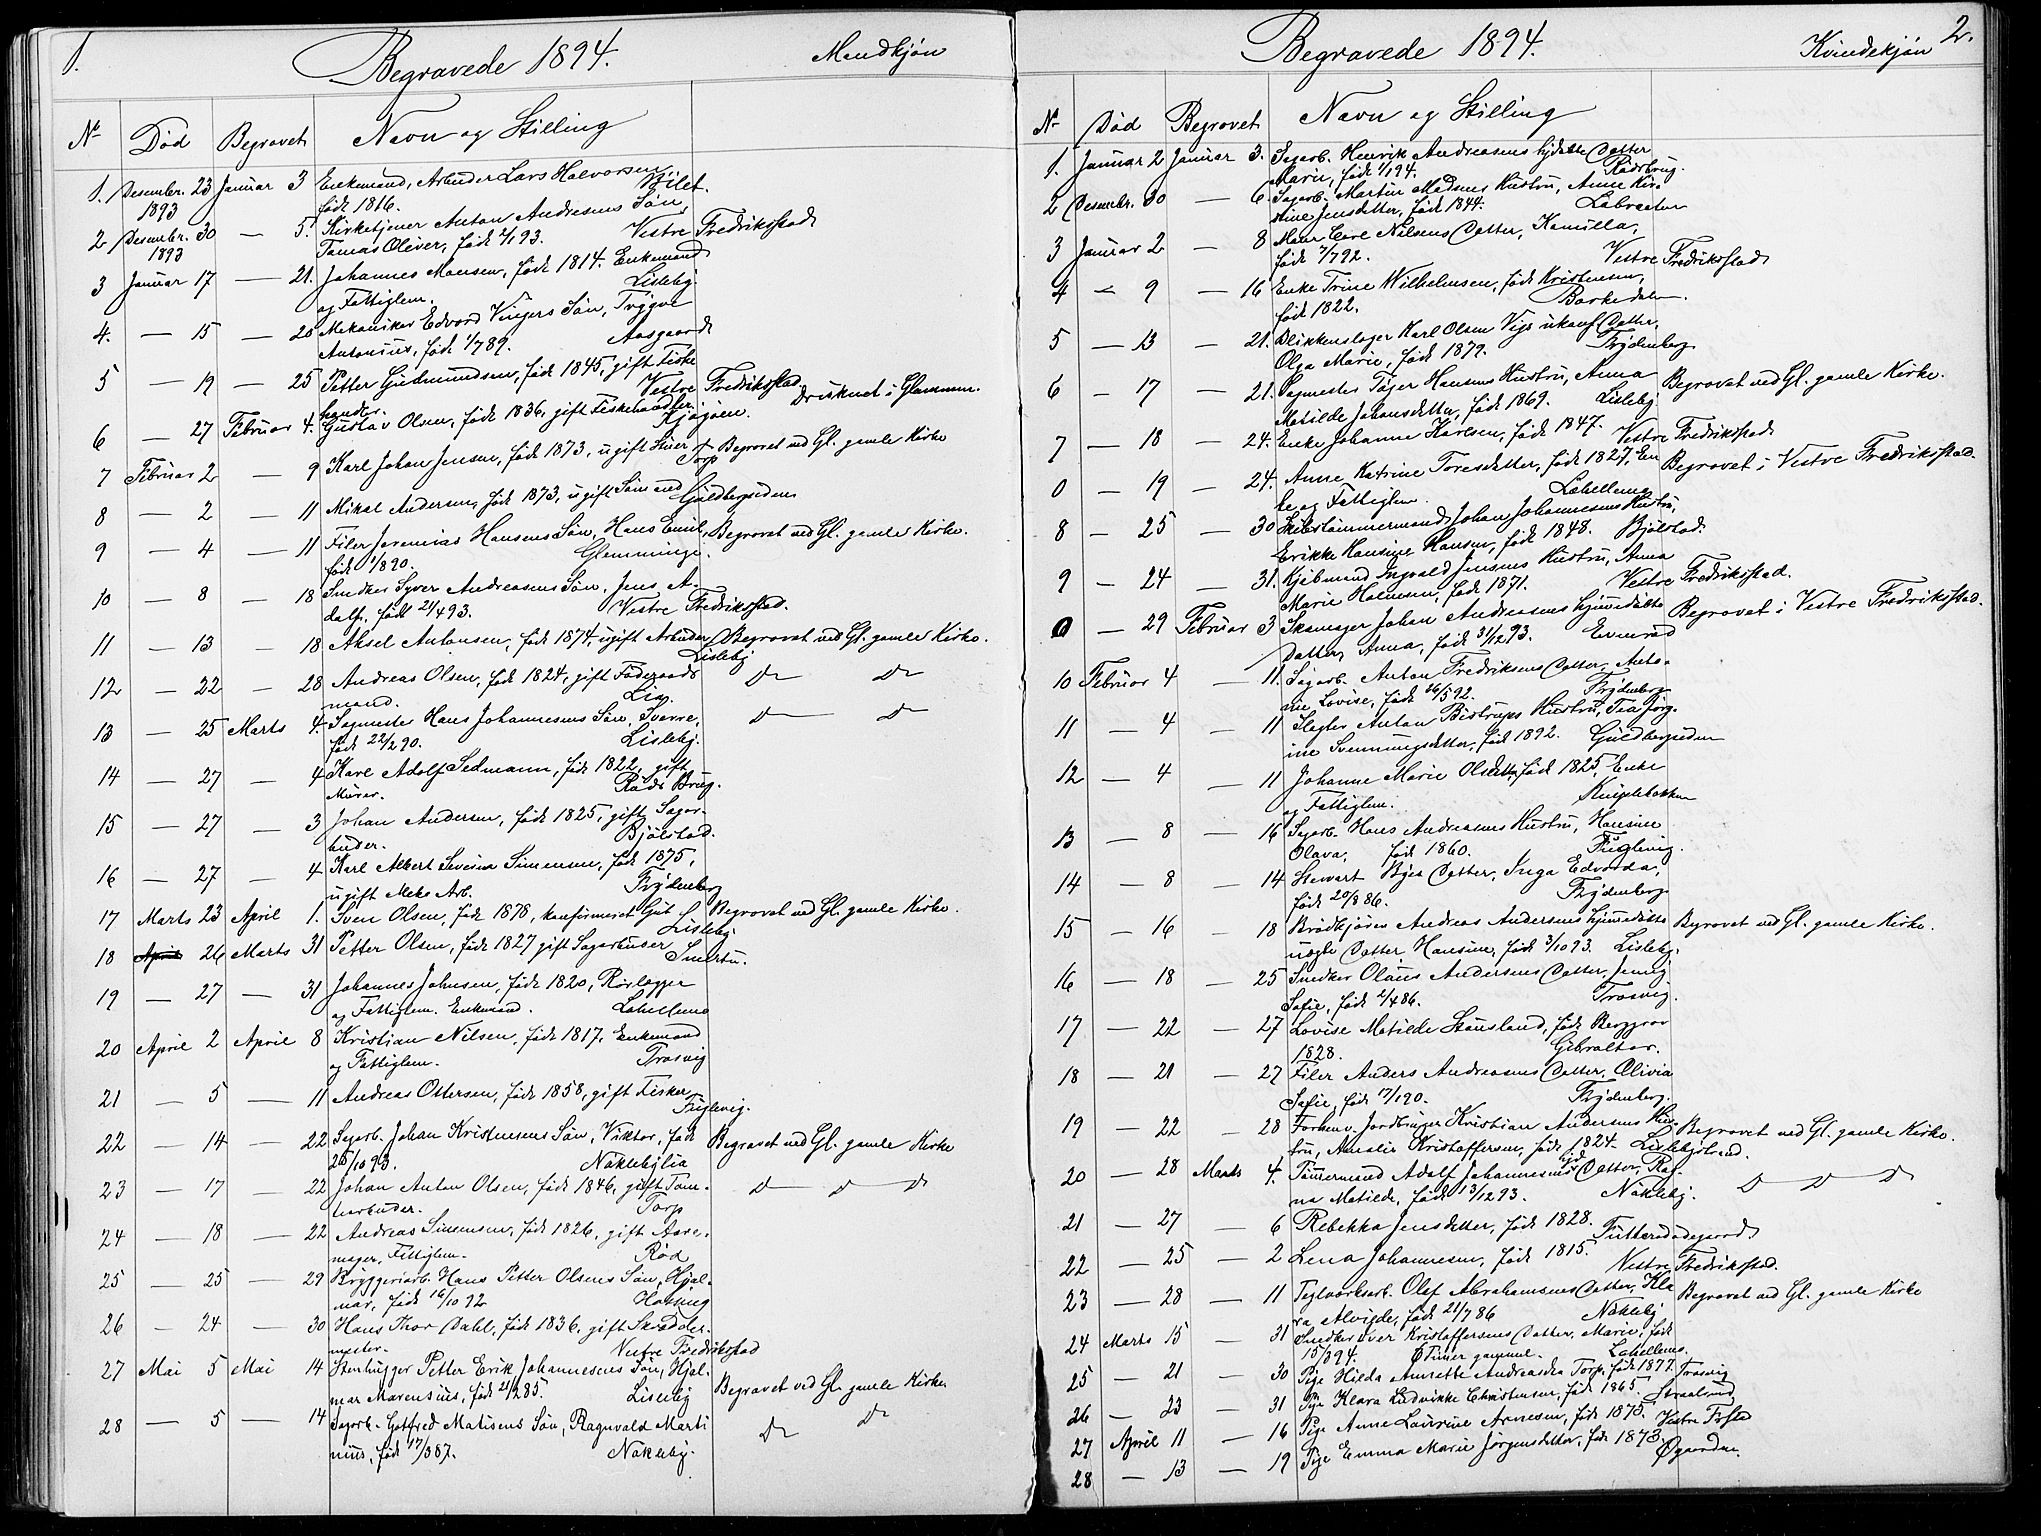 1.
Begravede 1894.
Mandkjøn
Nº Død Begravet Navn og Stilling
1. Desembr. 23 Januar 3 Enkemand, Arbeider Lars Halvorsen
1893 født 1816.
2 Desembr. 30 — 5. Kirketjener Anton Andresens Søn,
1893 Tomas Oliver, født 2/193. Vestre Fredriksstad
3 Januar 17 — 21. Johannes Monsen, født 1814. Enkemand
og Fattiglem. Lisleby.
4. — 15 — 20 Mekaniker Edvard Vingers Søn, Trygve
Antonius, født 1/789. Aasgaard
5 — 19 — 25 Petter Gudmundsen, født 1845, gift Fiske
handler. Vestre Fredriksstad.
6 — 27 Februar 4. Gustav Olsen, født 1836, gift Fiskehandler. Druknet i Glommen.
Kjøgøen.
7 Februar 2 — 9 Karl Johan Jensen, født 1873, ugift Begravet ved Gl. gamle Kirke
Torp
8 — 2 — 11 Mikal Andersen, født 1873, ugift Sømand Guldbergsiden
9 — 4 — 11 Filer Jeremias Hansens Søn, Hans Emil, Begravet ved Gl. gamle Kirke.
født 1/890. Glemminge.
10 — 8 — 18 Snedker Syver Andreasens Søn, Jens A-
dolf, født 21/493. Vestre Fredriksstad.
11 — 13 — 18 Aksel Antonsen, født 1874, ugift Arbeider Begravet ved Gl. gamle Kirke.
Lisleby
12 — 22 — 28 Andreas Olsen, født 1824, gift Føderaads Do Do
mand. Lia.
13 — 25 Marts 4. Sagmester Hans Johannesens Søn, Sverre, Do Do
født 22/290. Lisleby.
14 — 27 — 4 Karl Adolf Sedmann, født 1822, gift
Murer. Raads Brug.
15 — 27 — 3 Johan Andersen, født 1825, gift Sagar-
beider. Bjølstad.
16 — 27 — 4 Karl Albert Severin Simensen, født 1875,
ugift Mek. Arb. Frydenberg
17 Marts 23 April 1. Sven Olsen, født 1878, konfirmeret Gut Begravet ved Gl. gamle Kirke.
Lisleby.
18 April 26 Marts 31 Petter Olsen, født 1827 gift Sagarbeider Smertu.
19 — 27 — 31 Johannes Johnsen, født 1820, Rørlegger
og Fattiglem. Enkemand. Labellena
20 April 2 April 8 Kristian Nilsen, født 1817, Enkemand
og Fattiglem. Trosvig
21 — 5 — 11 Andreas Ottersen, født 1858, gift Fisker
Fuglevig.
22 — 14 — 22 Sagarb. Johan Kristensens Søn, Viktor, født Begravet ved Gl. gamle Kirke
26/1093. Naklebylia
23 — 17 — 22 Johan Anton Olsen, født 1846, gift Tøm- Do Do Do
merbuder. Torp
24 — 18 — 22 Andreas Simensen, født 1826, gift Aare-
mager, Fattiglem. Rød
25 — 25 — 29 Bryggeriarb. Hans Petter Olsens Søn, Hjal-
mar, født 16/1092 Hassing
26 — 24 — 30 Hans Thor Dahl, født 1836, gift Skrædder-
mester. Vestre Fredriksstad
27 Mai 5 Mai 14 Stenhugger Petter Erik Johannesens Søn, Hjal-
mar Marensius, født 21/285. Lisleby Begravet ved Gl. gamle Kirke.
28 — 5 — 14 Sagarb. Gotfred Matisens Søn, Ragnvald Marti Do Do
nius, født 17/387. Nakleby.
2.
Begravede 1894.
Kvindekjøn
Nº Død Begravet Navn og Stilling
1. Januar 2 Januar 3. Sagarb. Henrik Andreasens hjdøbte Datter
Marie, født 1/194. Raadsbrug.
2 Desembr. 30 — 6. Sagarb. Martin Madsens Hustru, Anne Kir-
stine Jensdatter, født 1844. Labraaten
3 Januar 2 — 8 Murer Carl Nilsens Datter, Kamilla,
født 7/792. Vestre Fredriksstad
4 — 9 — 16 Enke Trine Wilhelmsen, født Kristensen,
født 1822. Borkedalen.
5 — 13 — 21. Blikkenslager Karl Olsen Vigs ukonf. Datter,
Olga Marie, født 1879. Frydenberg
6 — 17 — 21. Sagmester Tøger Hansens Hustru, Anna Begravet ved Gl. gamle Kirke.
Matilde Johansdatter, født 1869. Lisleby
7 — 18 — 24. Enke Johanne Karlsen, født 1847. Vestre Fredriksstad
0 — 19 — 24. Anne Katrine Toresdatter, født 1827, En Begravet i Vestre Fredriksstad.
ke og Fattiglem. Labellena
8 — 25 — 30 Skibstømmermand Johan Johannesens Hustru,
Erikke Hansine Hansen, født 1848. Bjølstad.
9 — 24 — 31. Kjøbmand Ingvald Jensens Hustru, Anna
Marie Halvorsen, født 1871. Vestre Fredriksstad.
0 — 29 Februar 3 Skomager Johan Andreasens hjemmedøbte Begravet i Vestre Fredriksstad.
Datter, Anna, født 31/1293. Evenrød
10 Februar 4 — 11. Sagarb. Anton Fredriksens Datter, Anto-
nie Lovise, født 26/592. Frydenberg
11 — 4 — 11 Slagter Anton Bistrups Hustru, Tea Jørg-
ine Svenningsdatter, født 1892. Guldbergsiden
12 — 4 — 11 Johanne Marie Olsdatter, født 1825, Enke
og Fattiglem. Knipelebakken
13 — 8 — 16 Sagarb. Hans Andreasens Hustru, Hansine
Olava, født 1860. Fuglevig.
14 — 8 — 14 Stewart Bjes Datter, Inga Edvarda,
født 20/886. Frydenberg
15 — 16 — 18 Brødkjører Andreas Andersens hjemmedøbte Begravet ved Gl. gamle Kirke.
uægte Datter, Hansine, født 3/1093. Lisleby.
16 — 18 — 25 Snedker Olaus Andersens Datter, Jenny
Sofie, født 2/486. Trosvig.
17 — 22 — 27 Lovise Matilde Stousland, født Berggrav
1828. Gibraltar.
18 — 21 — 27 Filer Anders Andreasens Datter, Olivia
Sofie, født 17/190. Frydenberg.
19 — 22 — 28 Forhenv. Jordbruger Kristian Andersens Hus- Begravet ved Gl. gamle Kirke.
tru, Amalie Kristoffersen, født 1824. Lislebystrand.
20 — 28 Marts 4. Tømmermand Adolf Johannesens hjd Datter, Rag- Do Do Do
na Matilde, født 13/1293. Nakleby.
21 — 27 — 6 Rebekka Jensdatter, født 1828. Futteradsgaard
22 — 25 — 2 Lena Johannesen, født 1815. Vestre Fredriksstad.
23 — 28 — 11 Teglværksarb. Olaf Abrahamsens Datter, Kla Begravet ved Gl. gamle Kirke
ra Alvigde, født 21/786 Nakleby
24 Marts 15 — 31 Snedker Iver Kristoffersens Datter, Marie, født
15/394. Timer gammel. Labellena.
25 — 21 — 30 Pige Hilda Annette Andreasdtr Torp, født 1877. Trosvig
26 — 23 — 31 Pige Klara Ludvikke Christensen, født 1865. Straalsund
27 April 11 — 16 Pige Anne Laurine Arnesen, født 1875. Vestre Frstad
28 — 13 — 19 Pige Emma Marie Jørgensdatter, født 1873. Øgaarden